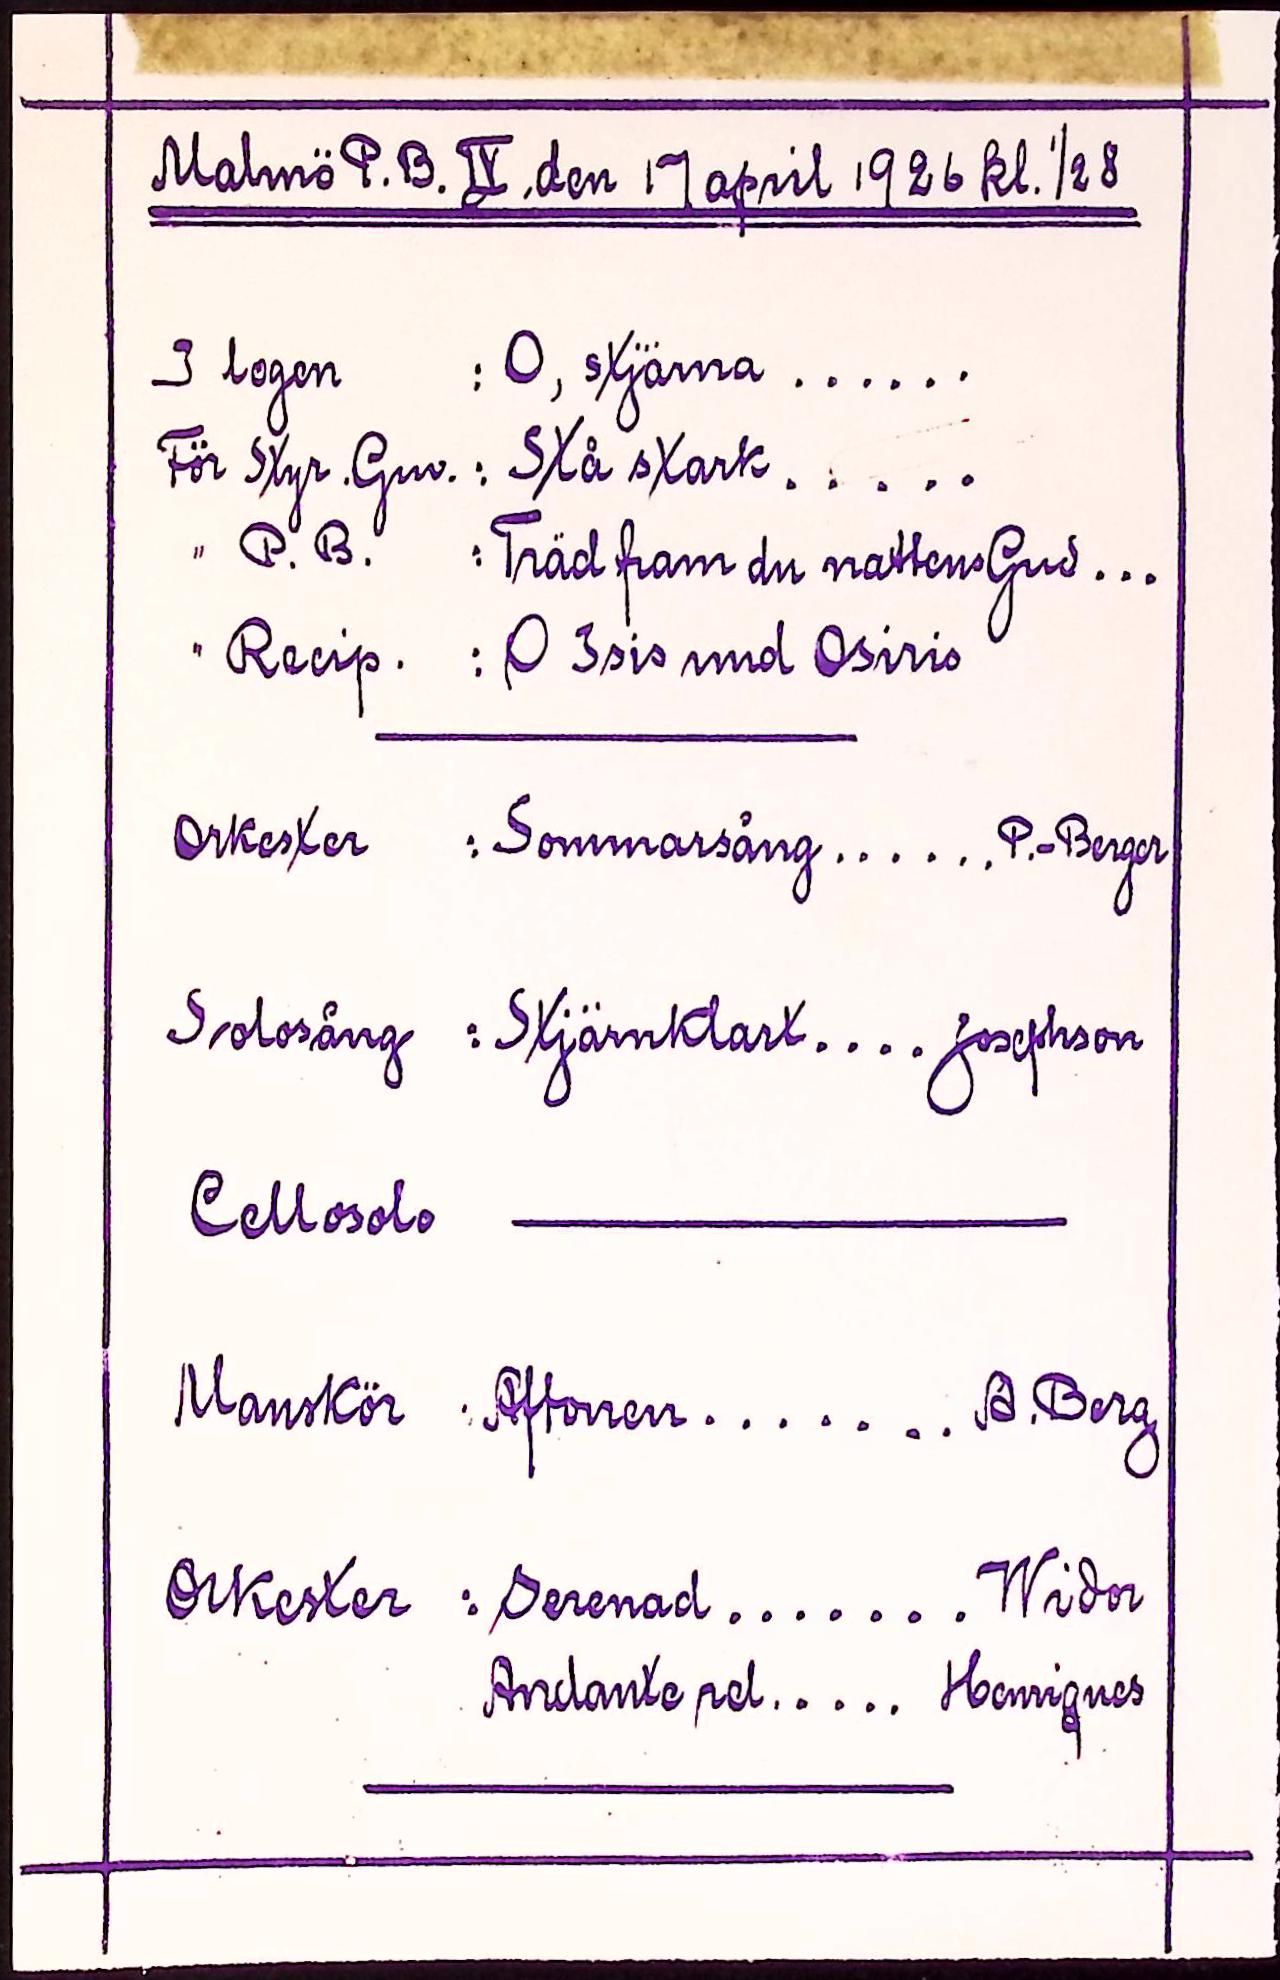 Malmö P. B. IV, den 17 april 1926 kl. 1/2 8
I logen : O, stjärna ......
För Styr. Guv. : Stå stark . . . . .
" P. B. : Träd fram du nattens Gud ...
" Recip. : O Isis und Osiris
Orkester : Sommarsång ...... P.-Berger
Solosång : Stjärnklart .... Josephson
Cellosolo
Manskör : Aftonen ........ A. Berg
Orkester : Serenad ....... Widor
Andante rel. .... Henriques